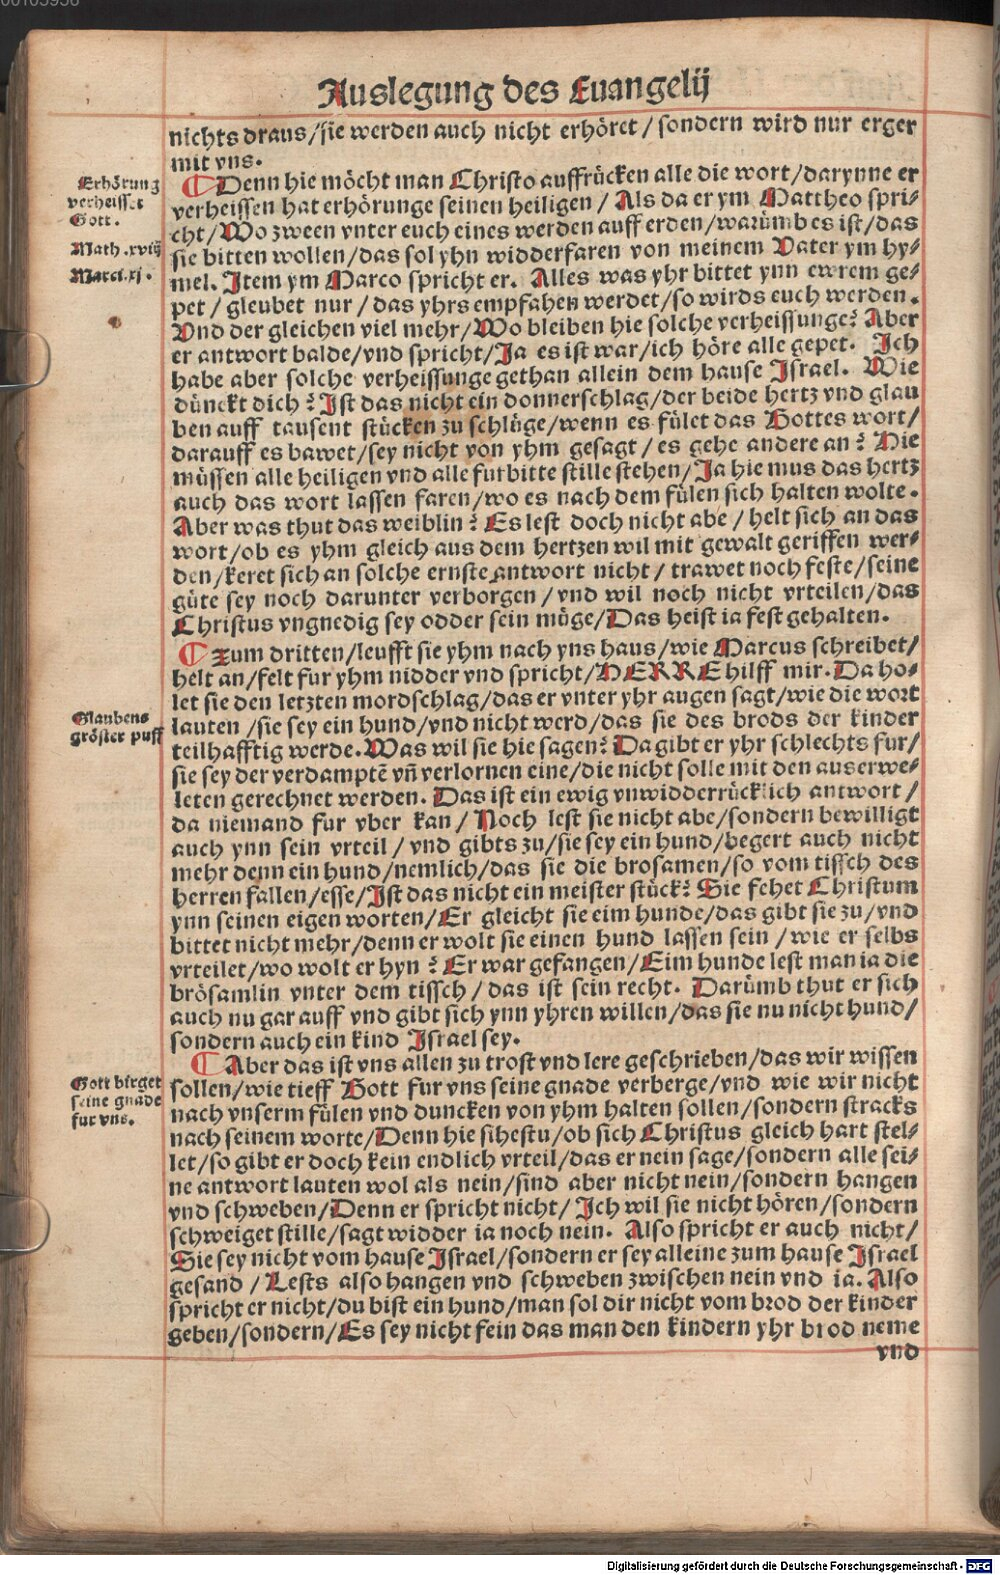 00105956
Auslegung des Euangelij
nichts draus/sie werden auch nicht erhöret/sondern wird nur erger
mit vns.
Erhörung
verheisset
Gott.
Math.xviij
Marci.xj.
¶ Denn hie möcht man Christo auffrücken alle die wort/darynne er
verheissen hat erhörunge seinen heiligen/Als da er ym Mattheo spri⸗
cht/Wo zween vnter euch eines werden auff erden/warümb es ist/das
sie bitten wollen/das sol yhn widderfaren von meinem Vater ym hy⸗
mel. Item ym Marco spricht er. Alles was yhr bittet ynn ewrem ge⸗
pet/gleubet nur/das yhrs empfahen werdet/so wirds euch werden.
Vnd der gleichen viel mehr/Wo bleiben hie solche verheissunge? Aber
er antwort balde/vnd spricht/Ja es ist war/ich höre alle gepet. Ich
habe aber solche verheissunge gethan allein dem hause Israel. Wie
dünckt dich? Ist das nicht ein donnerschlag/der beide hertz vnd glau
ben auff tausent stücken zu schlüge/wenn es fület das Gottes wort/
darauff es bawet/sey nicht von yhm gesagt/es gehe andere an? Hie
müssen alle heiligen vnd alle furbitte stille stehen/Ja hie mus das hertz
auch das wort lassen faren/wo es nach dem fülen sich halten wolte.
Aber was thut das weiblin? Es lest doch nicht abe/helt sich an das
wort/ob es yhm gleich aus dem hertzen wil mit gewalt geriffen wer⸗
den/keret sich an solche ernste antwort nicht/trawet noch feste/seine
güte sey noch darunter verborgen/vnd wil noch nicht vrteilen/das
Christus vngnedig sey odder sein müge/Das heist ia fest gehalten.
¶ Zum dritten/leufft sie yhm nach yns haus/wie Marcus schreibet/
helt an/felt fur yhm nidder vnd spricht/HERRE hilff mir. Da ho⸗
let sie den letzten mordschlag/das er vnter yhr augen sagt/wie die wort
Glaubens
gröster puff
lauten/sie sey ein hund/vnd nicht werd/das sie des brods der kinder
teilhafftig werde. Was wil sie hie sagen? Da gibt er yhr schlechts fur/
sie sey der verdamptē vn̄ verlornen eine/die nicht solle mit den auserwe⸗
leten gerechnet werden. Das ist ein ewig vnwidderrücklich antwort/
da niemand fur vber kan/Noch lest sie nicht abe/sondern bewilligt
auch ynn sein vrteil/vnd gibts zu/sie sey ein hund/begert auch nicht
mehr denn ein hund/nemlich/das sie die brosamen/so vom tissch des
herren fallen/esse/Ist das nicht ein meister stück? Sie fehet Christum
ynn seinen eigen worten/Er gleicht sie eim hunde/das gibt sie zu/vnd
bittet nicht mehr/denn er wolt sie einen hund lassen sein/wie er selbs
vrteilet/wo wolt er hyn? Er war gefangen/Eim hunde lest man ia die
brösamlin vnter dem tissch/das ist sein recht. Darümb thut er sich
auch nu gar auff vnd gibt sich ynn yhren willen/das sie nu nicht hund/
sondern auch ein kind Israel sey.
¶ Aber das ist vns allen zu trost vnd lere geschrieben/das wir wissen
Gott birget
seine gnade
fur vns.
sollen/wie tieff Gott fur vns seine gnade verberge/vnd wie wir nicht
nach vnserm fülen vnd duncken von yhm halten sollen/sondern stracks
nach seinem worte/Denn hie sihestu/ob sich Christus gleich hart stel⸗
let/so gibt er doch kein endlich vrteil/das er nein sage/sondern alle sei⸗
ne antwort lauten wol als nein/sind aber nicht nein/sondern hangen
vnd schweben/Denn er spricht nicht/Ich wil sie nicht hören/sondern
schweiget stille/sagt widder ia noch nein. Also spricht er auch nicht/
Sie sey nicht vom hause Israel/sondern er sey alleine zum hause Israel
gesand/Lests also hangen vnd schweben zwischen nein vnd ia. Also
spricht er nicht/du bist ein hund/man sol dir nicht vom brod der kinder
geben/sondern/Es sey nicht fein das man den kindern yhr brod neme
vnd
Digitalisierung gefördert durch die Deutsche Forschungsgemeinschaft - DFG